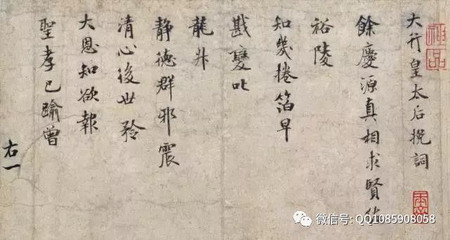 大行皇太后挽詞
餘慶源真相求賢佐
裕陵
知幾捲箔早
戡變叱
龍升
靜德群邪震
清心後世矜
大恩知欲報
聖孝已踰曾
右一
微信号: QQ1085908058